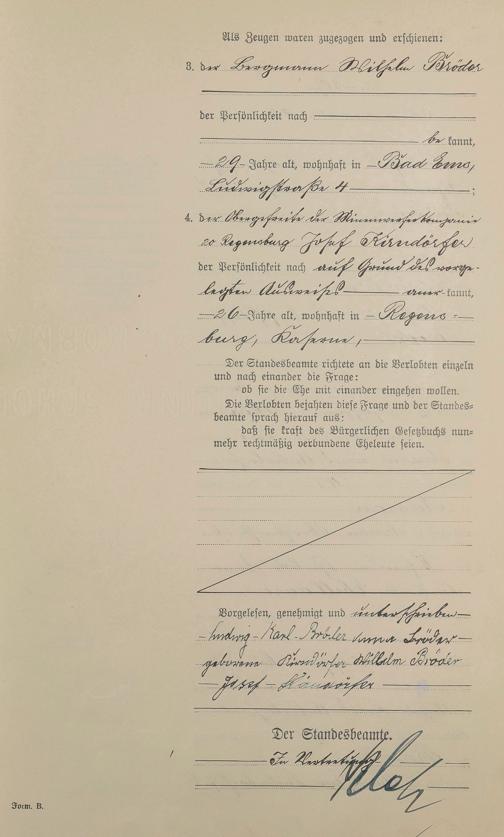 Als Zeugen waren zugezogen und erschienen:
3. der Bergmann Wilhelm Bröder
der Persönlichkeit nach
be kannt,
29 Jahre alt, wohnhaft in Bad Ems,
Ludwigstraße 4 ;
4. der Obergefreite der Minenwerferkompanie
20 Regensburg Josef Kirndörfer
der Persönlichkeit nach auf Grund des vorge-
legten Ausweises aner kannt,
26 Jahre alt, wohnhaft in Regens-
burg, Kaserne,
Der Standesbeamte richtete an die Verlobten einzeln
und nach einander die Frage:
ob sie die Ehe mit einander eingehen wollen.
Die Verlobten bejahten diese Frage und der Standes-
beamte sprach hierauf aus:
daß sie kraft des Bürgerlichen Gesetzbuchs nun-
mehr rechtmäßig verbundene Eheleute seien.
Vorgelesen, genehmigt und unterschrieben
Ludwig Karl Bröder Anna Bröder
geborene Kirndörfer Wilhelm Bröder
Josef Kirndörfer
Der Standesbeamte.
In Vertretung
Form. B.